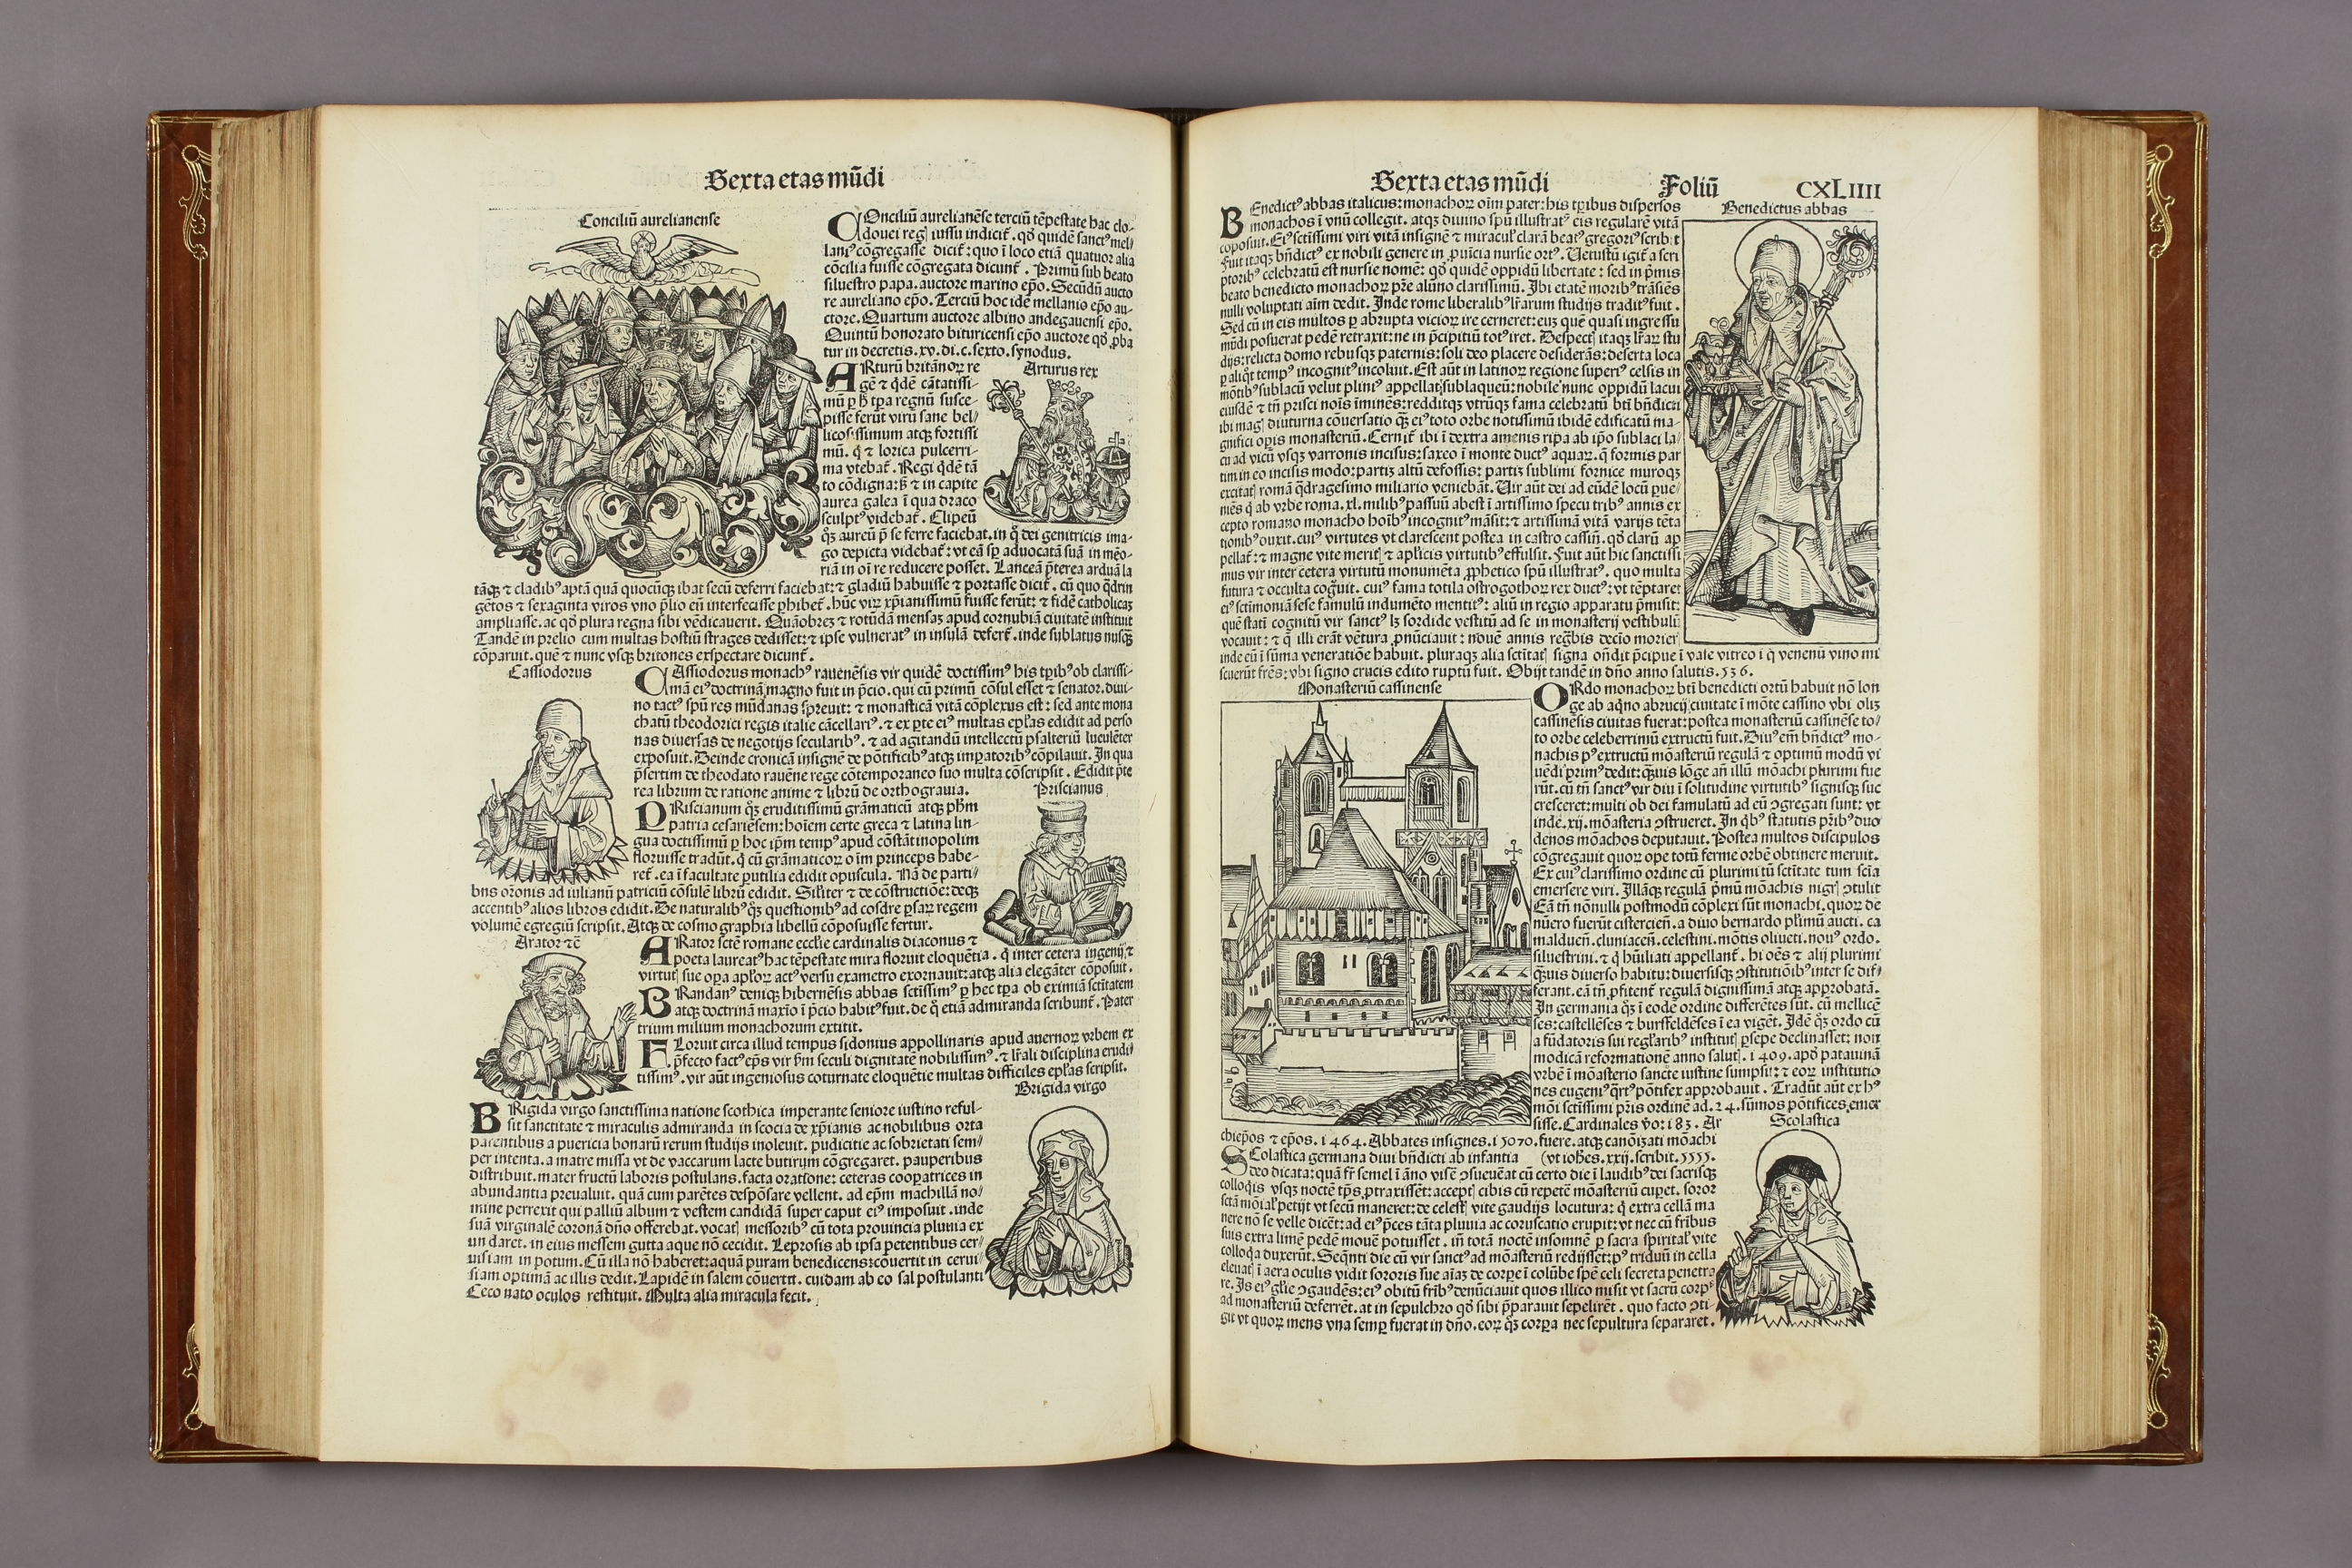 Sexta etas mũdi
Conciliũ aurelianense
COnciliũ aurelianẽse terciũ tẽpestate hac clo-
douei reg iussu indicit̃. qđ quidẽ sanctꝰ mel/
laniꝰ cõgregasse dicit̃: quo ĩ loco etiã quatuor alia
cõcilia fuisse cõgregata dicunt̃. Primũ sub beato
siluestro papa. auctore marino ep̃o. Secũdũ aucto
re aureliano ep̃o. Terciũ hoc idẽ mellanio ep̃o au-
ctore. Quartum auctore albino andegauensi ep̃o.
Quintũ honorato bituricensi ep̃o auctore qđ ꝓba
tur in decretis. xv. di. c. sexto. synodus.
Arturus rex
ARturũ britãnoꝝ re
gẽ ⁊ q̃dẽ cãtatissi-
mũ ꝑ h̃ tꝑa regnũ susce-
pisse ferũt virũ sane bel/
licosissimum atqꝫ fortissi
mũ. q̃ ⁊ lorica pulcerri-
ma vtebat̃. Regi q̃dẽ tã
to cõdigna: s̃ ⁊ in capite
aurea galea ĩ qua draco
sculptꝰ videbat̃. Clipeũ
q̃ꝫ aureũ p̃ se ferre faciebat. in q̃ dei genitricis ima-
go depicta videbat̃: vt eã sꝑ aduocatã suã in mẽo-
riã in oĩ re reducere posset. Lanceã p̃terea arduã la
tãqꝫ ⁊ cladibꝰ aptã quã quocũqꝫ ibat secũ deferri faciebat: ⁊ gladiũ habuisse ⁊ portasse dicit̃. cũ quo q̃drin
gẽtos ⁊ sexaginta viros vno p̃lio eũ interfecisse ꝑhibet̃. hũc virꝝ xp̃ianissimũ fuisse ferũt: ⁊ fidẽ catholicaꝫ
ampliasse. ac qđ plura regna sibi vẽdicauerit. Quãobreꝫ ⁊ rotũdã mensaꝫ apud cornubiã ciuitatẽ instituit
Tandẽ in prelio cum multas hostiũ strages dedisset: ⁊ ipse vulneratꝰ in insulã defert̃. inde sublatus nusq̃ꝫ
cõparuit. quẽ ⁊ nunc vsqꝫ britones exspectare dicunt̃.
Cassiodorus
CAssiodorus monachꝰ rauenẽsis vir quidẽ doctissimꝰ his tꝑibꝰ ob clarissi-
mã eiꝰ doctrinã magno fuit in p̃cio. qui cũ primũ cõsul esset ⁊ senator. diui-
no tactꝰ spũ res mũdanas spreuit: ⁊ monasticã vitã cõplexus est: sed ante mona
chatũ theodorici regis italie cãcellariꝰ. ⁊ ex ꝑte eiꝰ multas ep̃las edidit ad perso
nas diuersas de negotijs secularibꝰ. ⁊ ad agitandũ intellectũ psalteriũ luculẽter
exposuit. Deinde cronicã insignẽ de põtificibꝰ atqꝫ imꝑatoribꝰ cõpilauit. In qua
p̃sertim de theodato rauẽne rege cõtemporaneo suo multa cõscripsit. Edidit p̃te
rea librum de ratione anime ⁊ librũ de orthograuia.
Priscianus
PRiscianum q̃ꝫ eruditissimũ grãmaticũ atqꝫ ph̃m
patria cesariẽsem: hoĩem certe greca ⁊ latina lin-
gua doctissimũ ꝑ hoc ip̃m tempꝰ apud cõstãtinopolim
floruisse tradũt. q̃ cũ grãmaticoꝝ oĩm princeps habe-
ret̃. ea ĩ facultate ꝑutilia edidit opuscula. Nã de parti-
bus or̃onis ad iulianũ patriciũ cõsulẽ librũ edidit. Sil̃iter ⁊ de cõstructiõe: deqꝫ
accentibꝰ alios libros edidit. De naturalibꝰ q̃ꝫ questionibꝰ ad cosdre ꝑsaꝝ regem
volumẽ egregiũ scripsit. Atqꝫ de cosmographia libellũ cõposuisse fertur.
Arator ⁊c̃
ARator sctẽ romane eccl̃ie cardinalis diaconus ⁊
poeta laureatꝰ hac tẽpestate mira floruit eloquẽtia. q̃ inter cetera ingenij ⁊
virtut sue oꝑa apl̃oꝝ actꝰ versu exametro exornauit: atqꝫ alia elegãter cõposuit.
BRandanꝰ deniqꝫ hibernẽsis abbas sctissimꝰ ꝑ hec tꝑa ob eximiã sctitatem
atqꝫ doctrinã maxĩo ĩ p̃cio habitꝰ fuit. de q̃ etiã admiranda scribunt̃. Pater
trium milium monachorum extitit.
FLoruit circa illud tempus sidonius appollinaris apud auernoꝝ vrbem ex
p̃fecto factꝰ ep̃s vir ẜm seculi dignitatẽ nobilissimꝰ. ⁊ lr̃ali disciplina erudi/
tissimꝰ. vir aũt ingeniosus coturnate eloquẽtie multas difficiles ep̃las scripsit.
Brigida virgo
BRigida virgo sanctissima natione scothica imperante seniore iustino reful-
sit sanctitate ⁊ miraculis admiranda in scocia de xp̃ianis ac nobilibus orta
parentibus a puericia bonarũ rerum studijs inoleuit. pudicitie ac sobrietati sem/
per intenta. a matre missa vt de vaccarum lacte butirum cõgregaret. pauperibus
distribuit. mater fructũ laboris postulans. facta oratione: ceteras cooꝑatrices in
abundantia preualuit. quã cum parẽtes despõsare vellent. ad ep̃m machillã no/
mine perrexit qui palliũ album ⁊ vestem candidã super caput eiꝰ imposuit. inde
suã virginalẽ coronã dño offerebat. vocat messoribꝰ cũ tota prouincia pluuia ex
undaret. in eius messem gutta aque nõ cecidit. Leprosis ab ipsa petentibus cer/
uisiam in potum. Cũ illa nõ haberet: aquã puram benedicens: cõuertit in cerui
siam optimã ac illis dedit. Lapidẽ in salem cõuertit. cuidam ab eo sal postulanti
Ceco nato oculos restituit. Multa alia miracula fecit.
Sexta etas mũdi Foliũ CXLIIII
Benedictus abbas
BEnedictꝰ abbas italicus: monachoꝝ oĩm pater: his tꝑibus dispersos
monachos ĩ vnũ collegit. atqꝫ diuino spũ illustratꝰ eis regularẽ vitã
cõposuit. Eiꝰ sctissimi viri vitã insignẽ ⁊ miraculꝭ clarã beatꝰ gregoriꝰ scribit
Fuit itaqꝫ bñdictꝰ ex nobili genere in ꝓuĩcia nursie ortꝰ. Uetustũ igit̃ a scri
ptoribꝰ celebratũ est nursie nomẽ: qđ quidẽ oppidũ libertate: sed in p̃mis
beato benedicto monachoꝝ pr̃e alũno clarissimũ. Ibi etatẽ moribꝰ trãsiẽs
nulli voluptati aĩm dedit. Inde rome liberalibꝰ lr̃arum studijs traditꝰ fuit.
Sed cũ in eis multos ꝑ abrupta vicioꝝ ire cerneret: euꝫ quẽ quasi ingressu
mũdi posuerat pedẽ retraxit: ne in p̃cipitiũ totꝰ iret. Despect itaqꝫ lr̃aꝝ stu
dijs: relicta domo rebusqꝫ paternis: soli deo placere desiderãs: deserta loca
ꝑ aliq̃t tempꝰ incognitꝰ incoluit. Est aũt in latinoꝝ regione superiꝰ celsis in
mõtibꝰ sublacũ velut pliniꝰ appellat: sublaqueũ: nobile nunc oppidũ lacui
eiusdẽ ⁊ tñ prisci noĩs ĩminẽs: redditqꝫ vtrũqꝫ fama celebratũ bti bñdicti
ibi mag diuturna cõuersatio q̃ꝫ eiꝰ toto orbe notissimũ ibidẽ edificatũ ma-
gnifici oꝑis monasteriũ. Cernit̃ ibi ĩ dextra amenis ripa ab ip̃o sublaci la/
cu ad vicũ vsqꝫ varronis incisus: saxeo ĩ monte ductꝰ aquaꝝ. q̃ formis par
tim in eo incisis modo: partiꝫ altũ defossis: partiꝫ sublimi fornice muroqꝫ
excitat romã q̃dragesimo miliario veniebãt. Uir aũt dei ad eũdẽ locũ ꝑue/
niẽs q̃ ab vrbe roma. xl. milibꝰ passuũ abest ĩ artissimo specu tribꝰ annis ex
cepto romano monacho hoĩbꝰ incognitꝰ mãsit: ⁊ artissimã vitã varijs tẽta
tionibꝰ duxit. cuiꝰ virtutes vt clarescent postea in castro cassiũ. qđ clarũ ap
pellat̃: ⁊ magne vite merit ⁊ apl̃icis virtutibꝰ effulsit. Fuit aũt hic sanctissi
mus vir inter cetera virtutũ monumẽta ꝓphetico spũ illustratꝰ. quo multa
futura ⁊ occulta cog̃uit. cuiꝰ fama totila ostrogothoꝝ rex ductꝰ: vt tẽptaret
eiꝰ sctimoniã sese famulũ indumẽto mentitꝰ: aliũ in regio apparatu p̃misit:
quẽ stati cognitũ vir sanctꝰ lꝫ sordide vestitũ ad se in monasterij vestibulũ
vocauit: ⁊ q̃ illi erãt vẽtura ꝓnũciauit: nouẽ annis reg̃bis decio morier
inde eũ ĩ sũma veneratiõe habuit. pluraqꝫ alia sctitat signa oñdit p̃cipue ĩ vale vitreo ĩ q̃ venenũ vino mi
scuerũt frẽs: vbi signo crucis edito ruptũ fuit. Obijt tandẽ in dño anno salutis. 536.
Monasteriũ cassinense
ORdo monachoꝝ bti benedicti ortũ habuit nõ lon
ge ab aq̃no abrucij ciuitate ĩ mõte cassino vbi oliꝫ
cassinẽsis ciuitas fuerat: postea monasteriũ cassinẽse to/
to orbe celeberrimũ extructũ fuit. Diuꝰ em̃ bñdictꝰ mo-
nachis pꝰ extructũ mõasteriũ regulã ⁊ optimũ modũ vi
uẽdi primꝰ dedit: q̃uis lõge añ illũ mõachi plurimi fue
rũt. cũ tñ sanctꝰ vir diu ĩ solitudine virtutibꝰ signisqꝫ suc
cresceret: multi ob dei famulatũ ad eũ ꝯgregati sunt: vt
inde. xij. mõasteria ꝯstrueret. In q̃bꝰ statutis pr̃ibꝰ duo
denos mõachos deputauit. Postea multos discipulos
cõgregauit quoꝝ ope totũ ferme orbẽ obtinere meruit.
Ex cuiꝰ clarissimo ordine cũ plurimi tũ sctitate tum sciã
emersere viri. Illãqꝫ regulã p̃mũ mõachis nigr ꝯtulit
Eã tñ nõnulli postmodũ cõplexi sũt monachi. quoꝝ de
nũero fuerũt cistercien̄. a diuo bernardo pl̃imũ aucti. ca
malduen̄. cluniacen̄. celestini. mõtis oliueti. nouꝰ ordo.
siluestrini. ⁊ q̃ hũiliati appellant̃. hi oẽs ⁊ alij plurimi
q̃uis diuerso habitu: diuersisqꝫ ꝯstitutiõibꝰ inter se dif/
ferant. eã tñ ꝓfitent̃ regulã dignissimã atqꝫ approbatã.
In germania q̃ꝫ ĩ eodẽ ordine differẽtes sũt. cũ mellicẽ
ses: castellẽses ⁊ bursfeldẽses ĩ ea vigẽt. Idẽ q̃ꝫ ordo cũ
a fũdatoris sui regl̃aribꝰ institut ꝑsepe declinasset: non
modicã reformationẽ anno salut. 1409. apđ patauinã
vrbẽ ĩ mõasterio sancte iustine sumpsit: ⁊ eoꝝ institutio
nes eugeniꝰ q̃rtꝰ põtifex approbauit. Tradũt aũt ex hꝰ
mõi sctissimi pr̃is ordinẽ ad. 24. sũmos põtifices emer
sisse. Cardinales ṽo: 183. Ar
chiep̃os ⁊ ep̃os. 1464. Abbates insignes. 15070. fuere. atqꝫ canõizati mõachi
(vt ioh̃es. xxij. scribit. 5555.
Scolastica
SColastica germana diui bñdicti ab infantia
deo dicata: quã fr̃ semel ĩ ãno visẽ ꝯsueuẽat cũ certo die ĩ laudibꝰ dei sacrisqꝫ
colloqijs vsqꝫ noctẽ tp̃s ꝓtraxisset: accept cibis cũ repetẽ mõasteriũ cuꝑet. soror
sctã mõialꝭ petijt vt secũ maneret: de celest vite gaudijs locutura: q̃ extra cellã ma
nere nõ se velle dicẽt: ad eiꝰ p̃ces tãta pluuia ac coruscatio erupit: vt nec cũ fr̃ibus
suis extra limẽ pedẽ mouẽ potuisset. iñ totã noctẽ insomnẽ ꝑ sacra spiritalꝭ vite
colloqa duxerũt. Seq̃nti die cũ vir sanctꝰ ad mõasteriũ redijsset: pꝰ triduũ in cella
eleuat ĩ aera oculis vidit sororis sue aĩaꝫ de corꝑe ĩ colũbe sp̃ẽ celi secreta penetra
re. Is eiꝰ gl̃ie ꝯgaudẽs: eiꝰ obitũ fr̃ibꝰ denũciauit quos illico misit vt sacrũ corpꝰ
ad monasteriũ deferrẽt. at in sepulchro qđ sibi p̃parauit sepelirẽt. quo facto ꝯti-
git vt quoꝝ mens vna semꝑ fuerat in dño. eoꝝ q̃ꝫ corꝑa nec sepultura separaret.